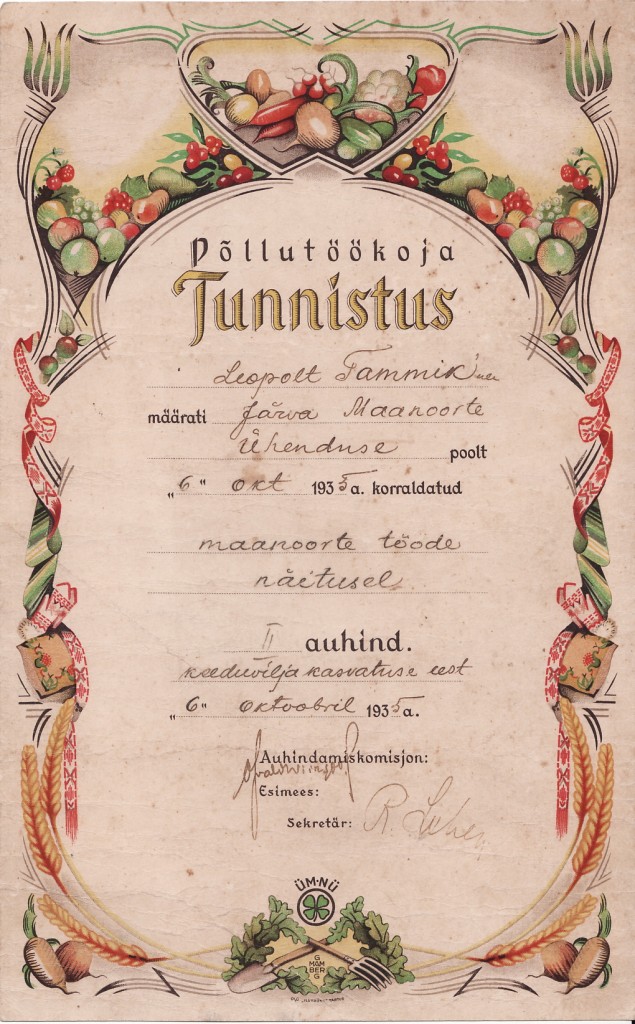 Põllutöökoja
Tunnistus
Leopolt Tammik'ule
määrati Järva Maanoorte
Ühenduse poolt
„6" okt 1935 a. korraldatud
maanoorte tööde
näitusel
II auhind.
keeduvilja kasvatuse eest
„6" oktoobril 1935 a.
Auhindamiskomisjon:
Esimees:
Sekretär: R.
ÜM·NÜ
G
MAM
BER
G